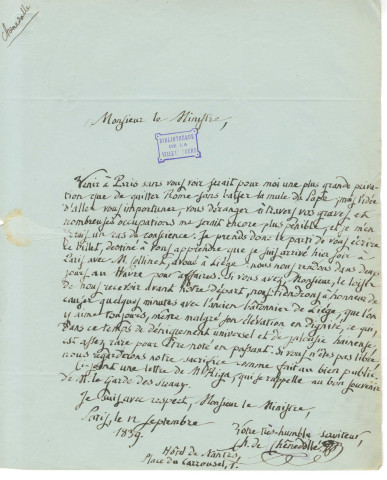 Chenedollé
Monsieur le Ministre,
BIBLIOTHÈQUE
DE LA
Venir à Paris sans vous voir serait pour moi une plus grande priva-
tion que de quitter Rome sans baiser la mule du Pape; mais l'idée
d'aller vous importuner, vous déranger à travers vos graves et
nombreuses occupations me serait encore plus pénible, et je m'en
ferais un cas de conscience. Je prends donc le parti de vous écrire
ce billet, destiné à vous apprendre que je suis arrivé hier soir à
Paris avec M. avoué à Liége, nous nous rendons dans deux
jours au Havre pour affaires. Si vous avez, Monsieur, le loisir
de nous recevoir avant notre départ, nous tiendrons à honneur de
causer quelques minutes avec l'ancien bâtonnier de Liége, que l'on
y aime toujours, même malgré son élévation en dignité, ce qui,
dans ce temps de dénigrement universel et de jalousie haineuse,
est assez rare pour être noté en passant. Si vous n'êtes pas libre,
nous regarderons notre sacrifice comme fait au bien public.
Ci-joint une lettre de qui se rappelle au bon souvenir
de M. le Garde des Sceaux.
Je suis avec respect, Monsieur le Ministre,
Paris, le 12 septembre
1839.
Votre très-humble serviteur,
Ch. de Chênedollé
Hôtel de Nantes,
Place du Carrousel,